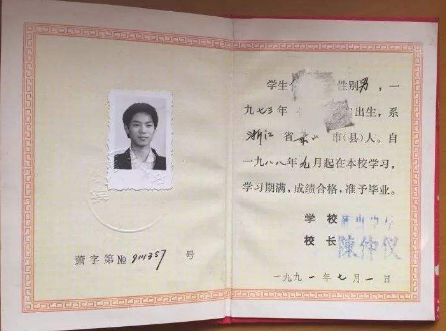 学生 性别男，一
九七三年 出生，系
浙江省 山市(县)人。自
一九八八年九月起在本校学习，
学习期满，成绩合格，准予毕业。
学校
校长 陳仲仪
萧字第№ 911357 号
一九九一年七月一日